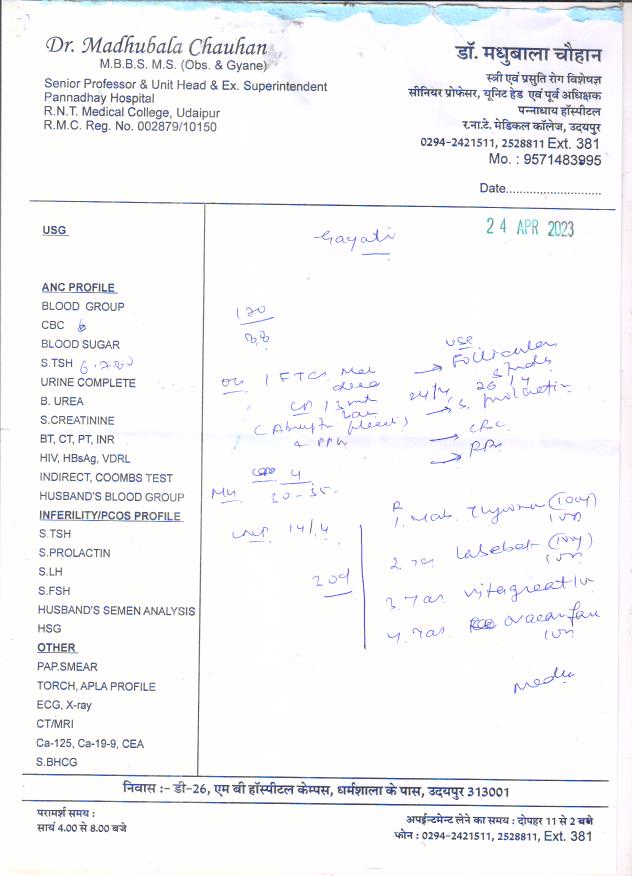 Dr. Madhubala Chauhan
M.B.B.S. M.S. (Obs. & Gyane)
Senior Professor & Unit Head & Ex. Superintendent
Pannadhay Hospital
R.N.T. Medical College, Udaipur
R.M.C. Reg. No. 002879/10150
डॉ. मधुबाला चौहान
स्त्री एवं प्रसुति रोग विशेषज्ञ
सीनियर प्रोफेसर, यूनिट हेड एवं पूर्व अधिक्षक
पन्नाधाय हॉस्पीटल
र.ना.टे. मेडिकल कॉलेज, उदयपुर
0294-2421511, 2528811 Ext. 381
Mo. : 9571483995
Date............................
24 APR 2023
USG
ANC PROFILE
BLOOD GROUP
CBC
BLOOD SUGAR
S.TSH
URINE COMPLETE
B. UREA
S.CREATININE
BT, CT, PT, INR
HIV, HBsAg, VDRL
INDIRECT, COOMBS TEST
HUSBAND'S BLOOD GROUP
INFERILITY/PCOS PROFILE
S.TSH
S.PROLACTIN
S.LH
S.FSH
HUSBAND'S SEMEN ANALYSIS
HSG
OTHER
PAP.SMEAR
TORCH, APLA PROFILE
ECG, X-ray
CT/MRI
Ca-125, Ca-19-9, CEA
S.BHCG
Gayatri
120
88
→ Follicular
24/4 26/4
→ S. prolactin
→ CBC
20-35
14/4
20d
1.
2.
3.
4.
निवास :- डी-26, एम बी हॉस्पीटल केम्पस, धर्मशाला के पास, उदयपुर 313001
परामर्श समय :
सायं 4.00 से 8.00 बजे
अपईन्टमेन्ट लेने का समय : दोपहर 11 से 2 बजे
फोन : 0294-2421511, 2528811, Ext. 381